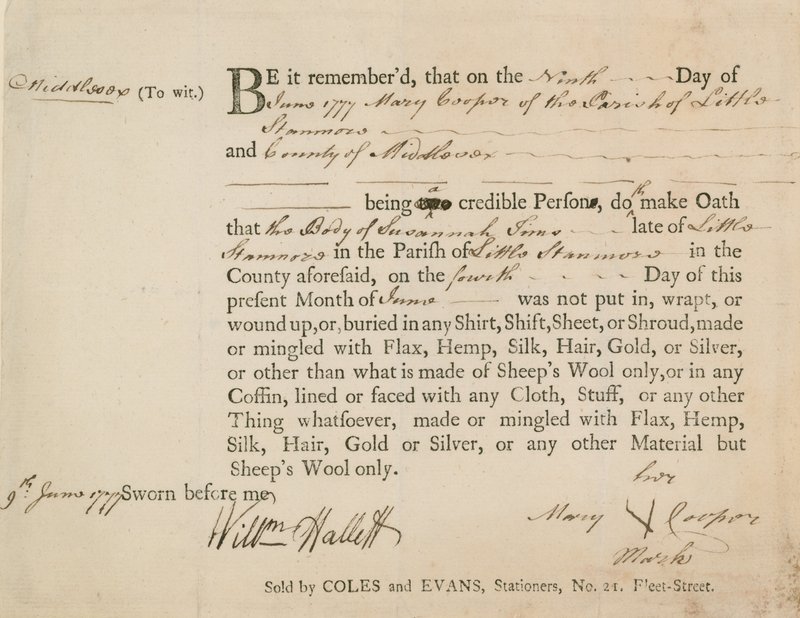 Middlesex (To wit.)
BE it remember'd, that on the Ninth Day of
June 1777 Mary Cooper of the Parish of Little
Stanmore
and County of Middlesex
being a credible Perſon, doth make Oath
that the Body of Susannah Tims late of Little
Stanmore in the Pariſh of Little Stanmore in the
County aforeſaid, on the fourth Day of this
preſent Month of June was not put in, wrapt, or
wound up, or, buried in any Shirt, Shift, Sheet, or Shroud, made
or mingled with Flax, Hemp, Silk, Hair, Gold, or Silver,
or other than what is made of Sheep's Wool only, or in any
Coffin, lined or faced with any Cloth, Stuff, or any other
Thing whatſoever, made or mingled with Flax, Hemp,
Silk, Hair, Gold or Silver, or any other Material but
Sheep's Wool only.
9th. June 1777 Sworn before me
Willm Hallett
her
Mary X Cooper
Mark
Sold by COLES and EVANS, Stationers, No. 21. Fleet-Street.